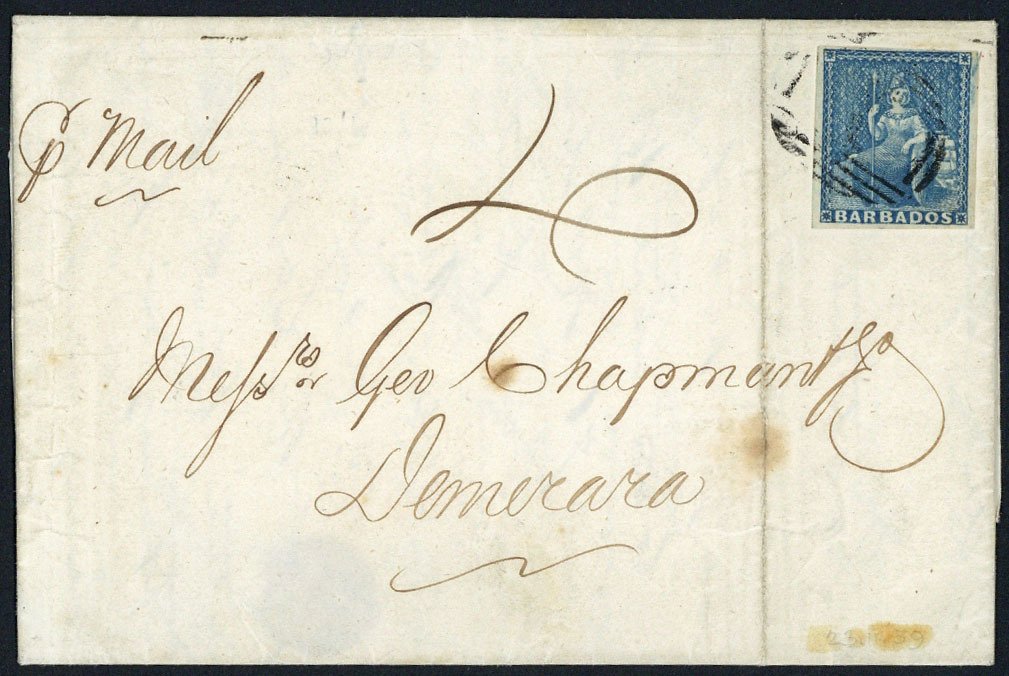 p Mail
BARBADOS
Messrs Geo Chapman & Co
Demerara